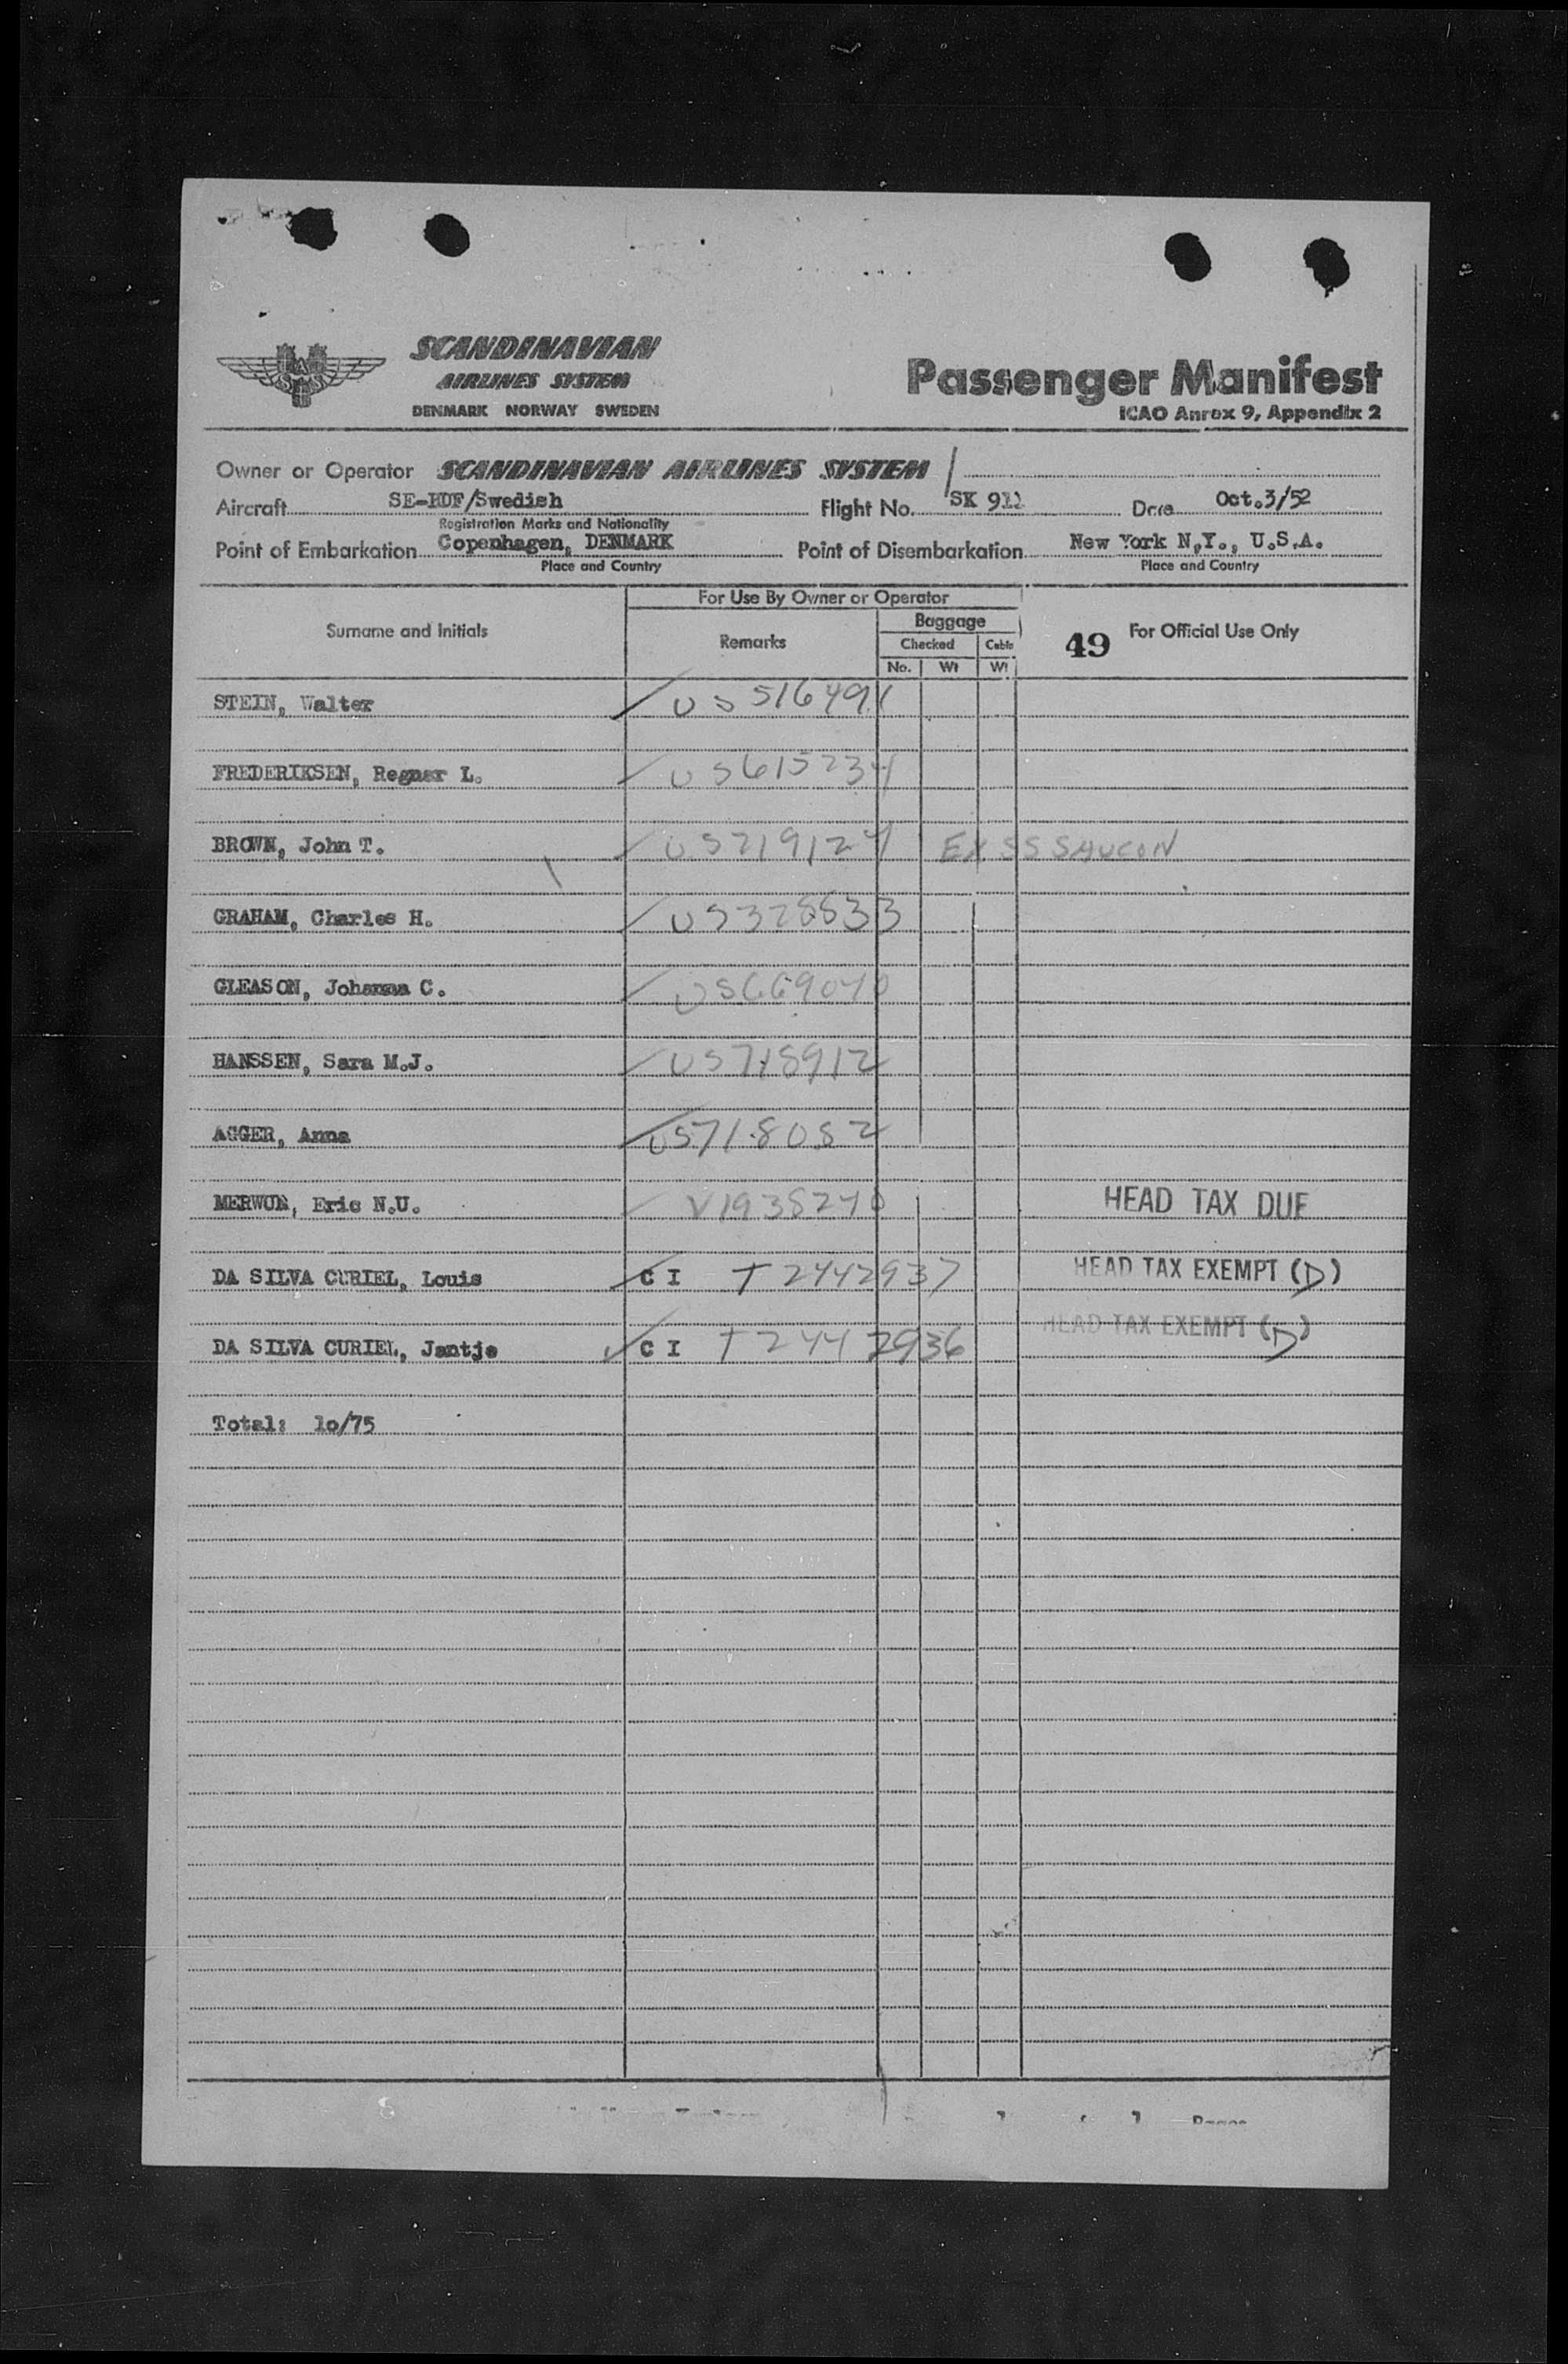 SAS
SCANDINAVIAN
AIRLINES SYSTEM
DENMARK NORWAY SWEDEN
Passenger Manifest
ICAO Annex 9, Appendix 2
Owner or Operator SCANDINAVIAN AIRLINES SYSTEM
Aircraft SE-BDF/Swedish Flight No. SK 912 Date Oct.3/52
Registration Marks and Nationality
Point of Embarkation Copenhagen, DENMARK Point of Disembarkation New York N.Y., U.S.A.
Place and Country Place and Country
For Use By Owner or Operator
Surname and Initials Remarks Baggage 49 For Official Use Only
Checked Cabin
No. Wt Wt
STEIN, Walter US 516491
FREDERIKSEN, Regnar L. US615234
BROWN, John T. US719124 EX SS SAUCON
GRAHAM, Charles H. US328533
GLEASON, Johanna C. US669040
HANSSEN, Sara M.J. US718912
AGGER, Anna US718082
Eric N.U. V1938240 HEAD TAX DUE
DA SILVA CURIEL, Louis C I T2442937 HEAD TAX EXEMPT (D)
DA SILVA CURIEL, Jantje C I T2442936 HEAD TAX EXEMPT (D)
Total: 1o/75
Pages